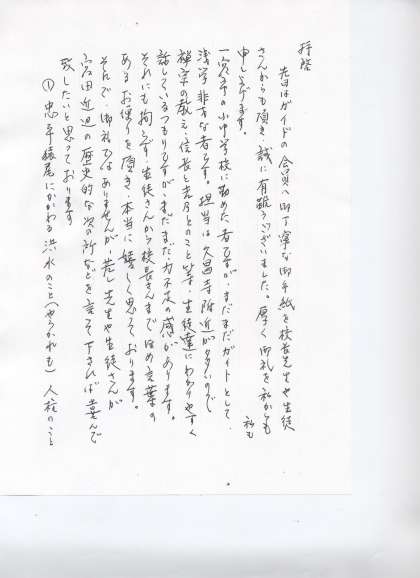 拝啓
先日はガイドの会員へ御丁寧な御手紙を校長先生や生徒
さんからも頂き誠に有難うございました。厚く御礼を私からも
申し上げます。
私も
一宮市の小中学校に勤めた者ですが、まだまだガイドとして
浅学非才な者です。担当は久昌寺附近が多いので
禅宗の教え、信長と吉乃とのこと等、生徒達にわかりやすく
話しているつもりですが、まだまだ力不足の感があります。
それにも拘らず、生徒さんから校長さんまでほめ言葉の
あるお便りを頂き、本当に嬉しく思っております。
それで、御礼ではありませんが、若し先生や生徒さんが
宮田近辺の歴史的な次の所などを言って下されば喜んで
致したいと思っております
① 忠平猿尾にかかわる洪水のこと(やろかれも) 人柱のこと